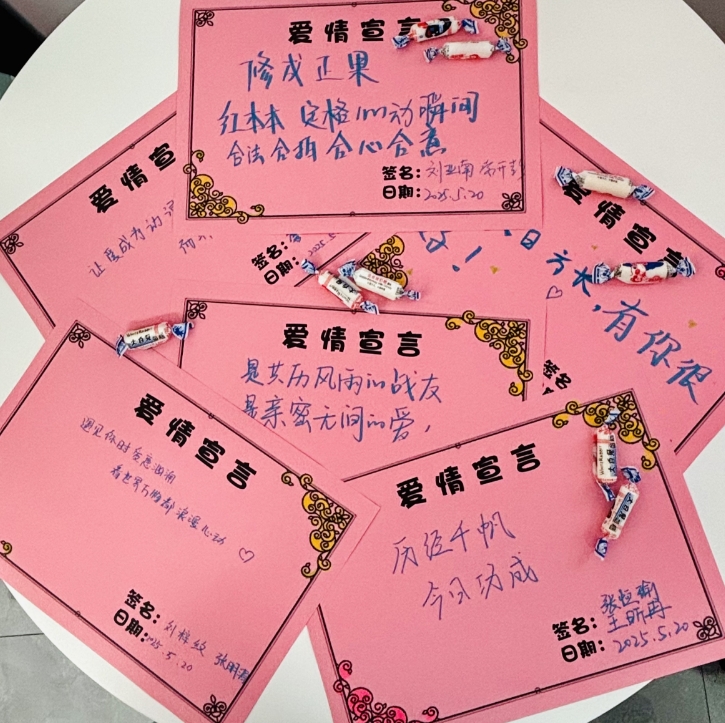 爱情宣言
修成正果
红本本 定格心动瞬间
合法合拍 合心合意
签名:刘亚南
日期:2025.5.20
爱情宣言
让爱成为动词
签名:
日期:2025.5
爱情宣言
日方长,有你很
签名
爱情宣言
是共历风雨的战友
是亲密无间的爱,
爱情宣言
遇见你时爱意汹涌
看世界万物都浪漫心动
签名:
日期:2025.5.20
爱情宣言
历经千帆
今日功成
签名:张恒瑜
王昕冉
日期:2025.5.20
大白兔